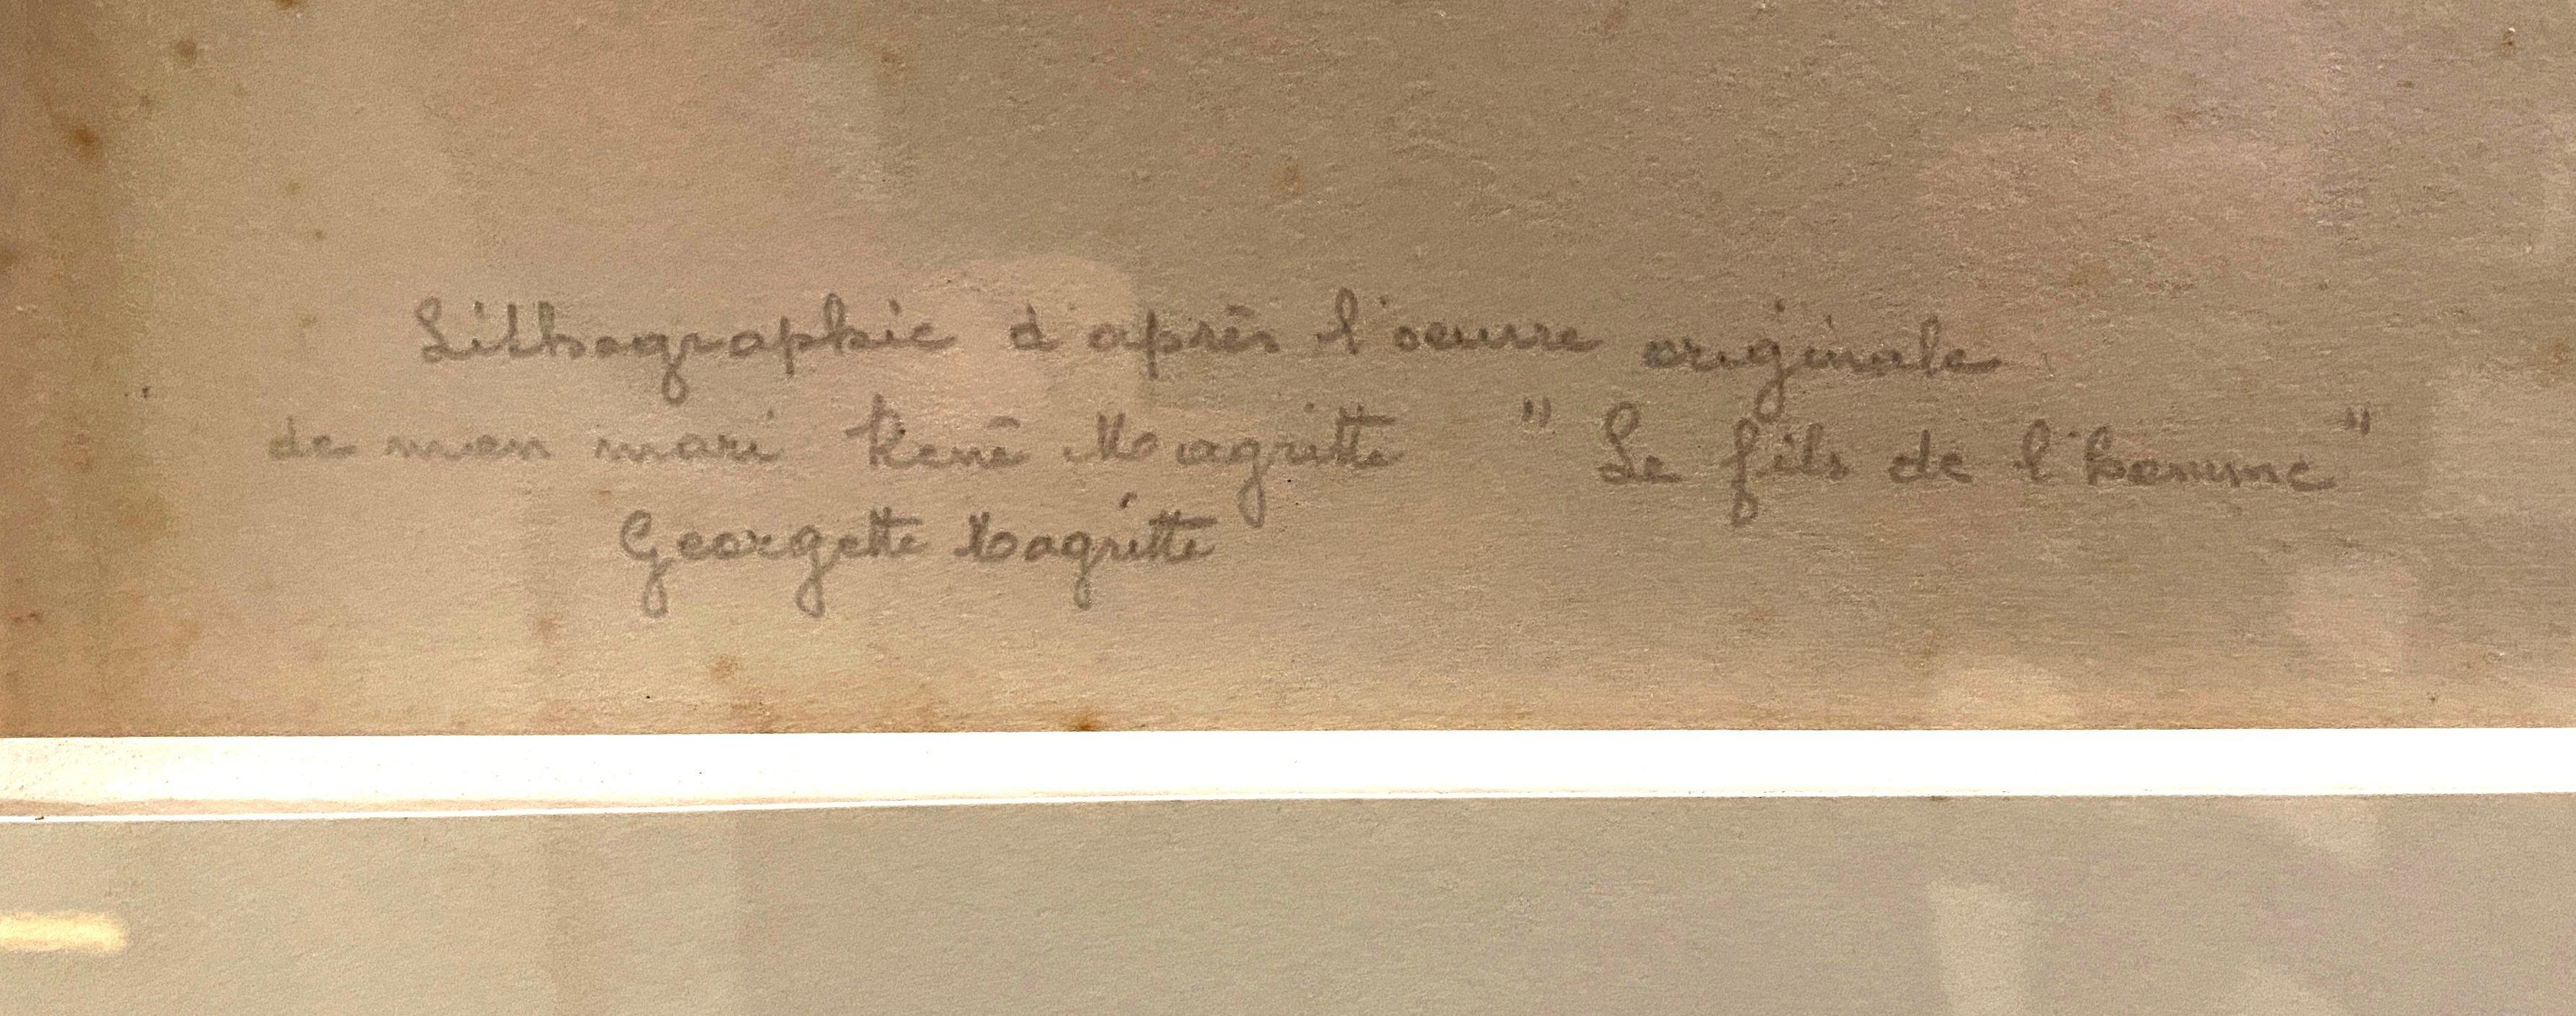 Lithographie d'après l'oeuvre originale
de mon mari René Magritte " Le fils de l'homme "
Georgette Magritte